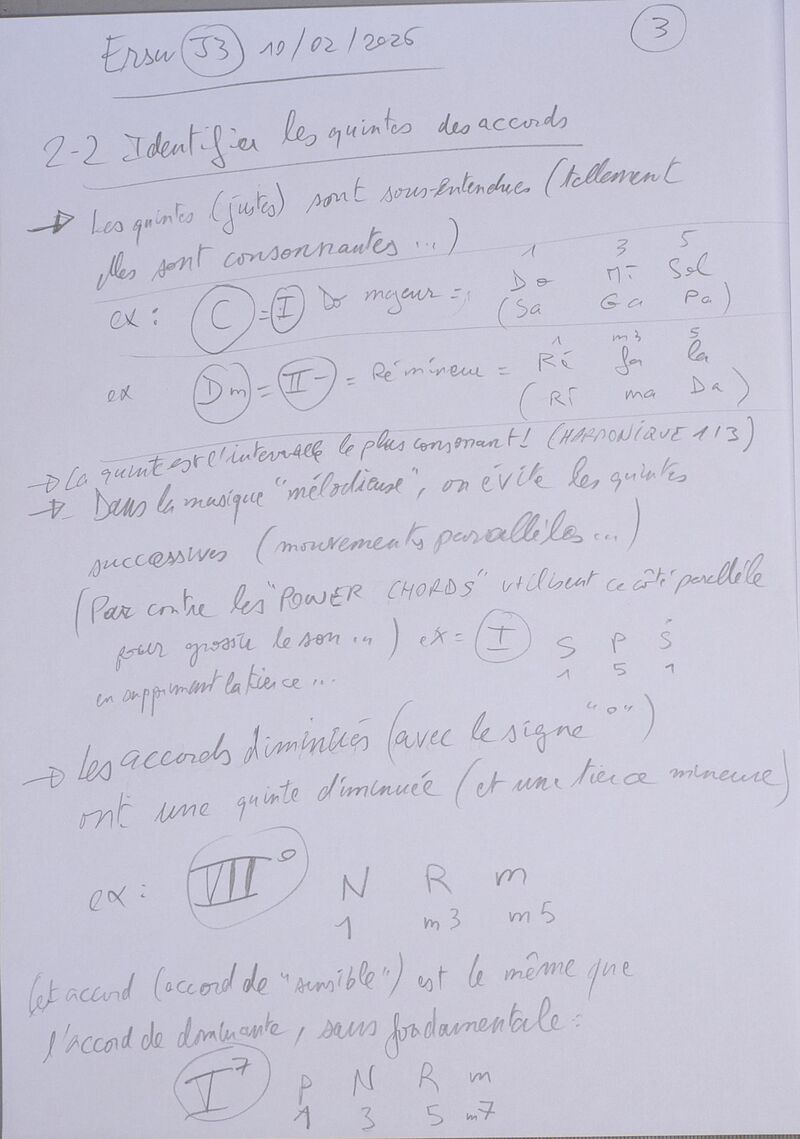 3
Ersu J3 10/02/2026
2-2 Identifier les quintes des accords
→ Les quintes (justes) sont sous-entendues (tellement
elles sont consonnantes ...)
1 3 5
ex : C = I Do majeur = Do Mi Sol
(Sa Ga Pa)
1 m3 5
ex Dm = II- = Ré mineur = Ré fa la
(Ri ma Da)
→ La quinte est l'intervalle le plus consonant! (HARMONIQUE 1/3)
→ Dans la musique "mélodieuse", on évite les quintes
successives (mouvements parallèles ...)
(Par contre les "POWER CHORDS" utilisent ce côté parallèle
pour grossir le son ...) ex = I S P Ṡ
en supprimant la tierce ... 1 5 1
→ Les accords diminués (avec le signe "°")
ont une quinte diminuée (et une tierce mineure)
ex : VII° N R m
1 m3 m5
Cet accord (accord de "sensible") est le même que
l'accord de dominante, sans fondamentale :
V7 P N R m
1 3 5 m7